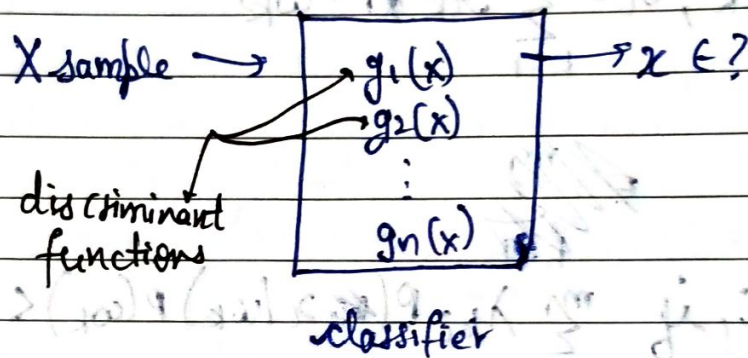 X sample → g1(x) → x ∈ ?
g2(x)
⋮
discriminant
functions
gn(x)
classifier